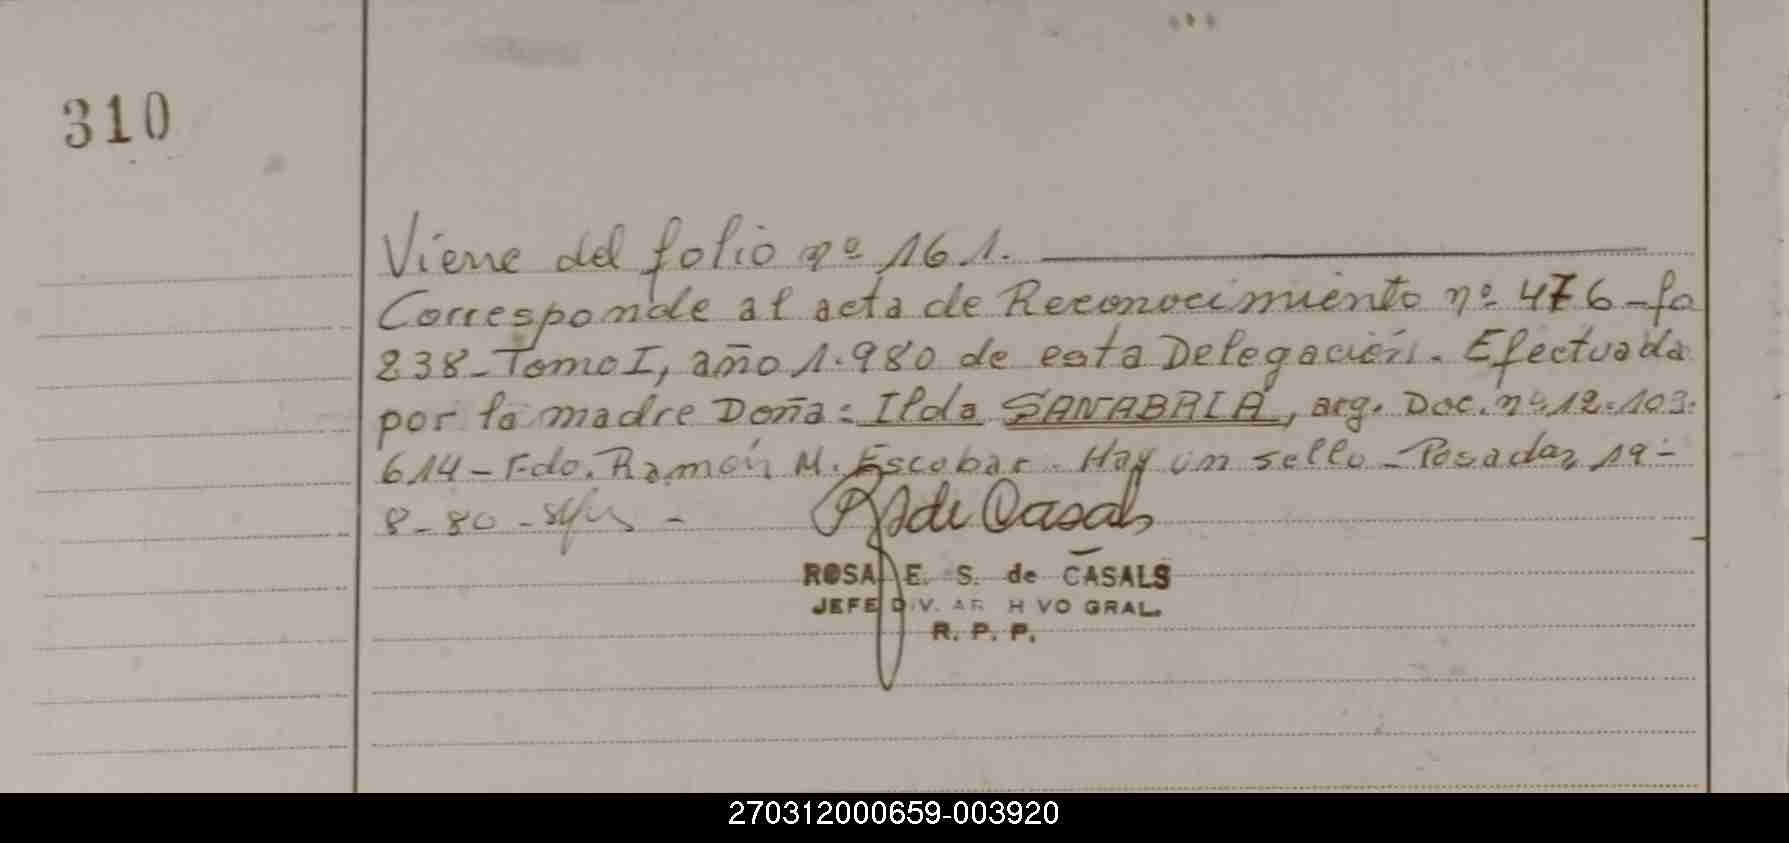 310
Viene del folio nº 161.
Corresponde al acta de Reconocimiento nº 476-fo
238-Tomo I, año 1.980 de esta Delegación. Efectuada
por la madre Doña: Ilda SANABRIA, arg. Doc. nº 12.103.
614-Fdo. Ramón M. Escobar. Hay un sello-Posadas, 19-
8-80-
R S de Casals
ROSA E. S. de CASALS
JEFE DIV. ARCHIVO GRAL.
R. P. P.
270312000659-003920